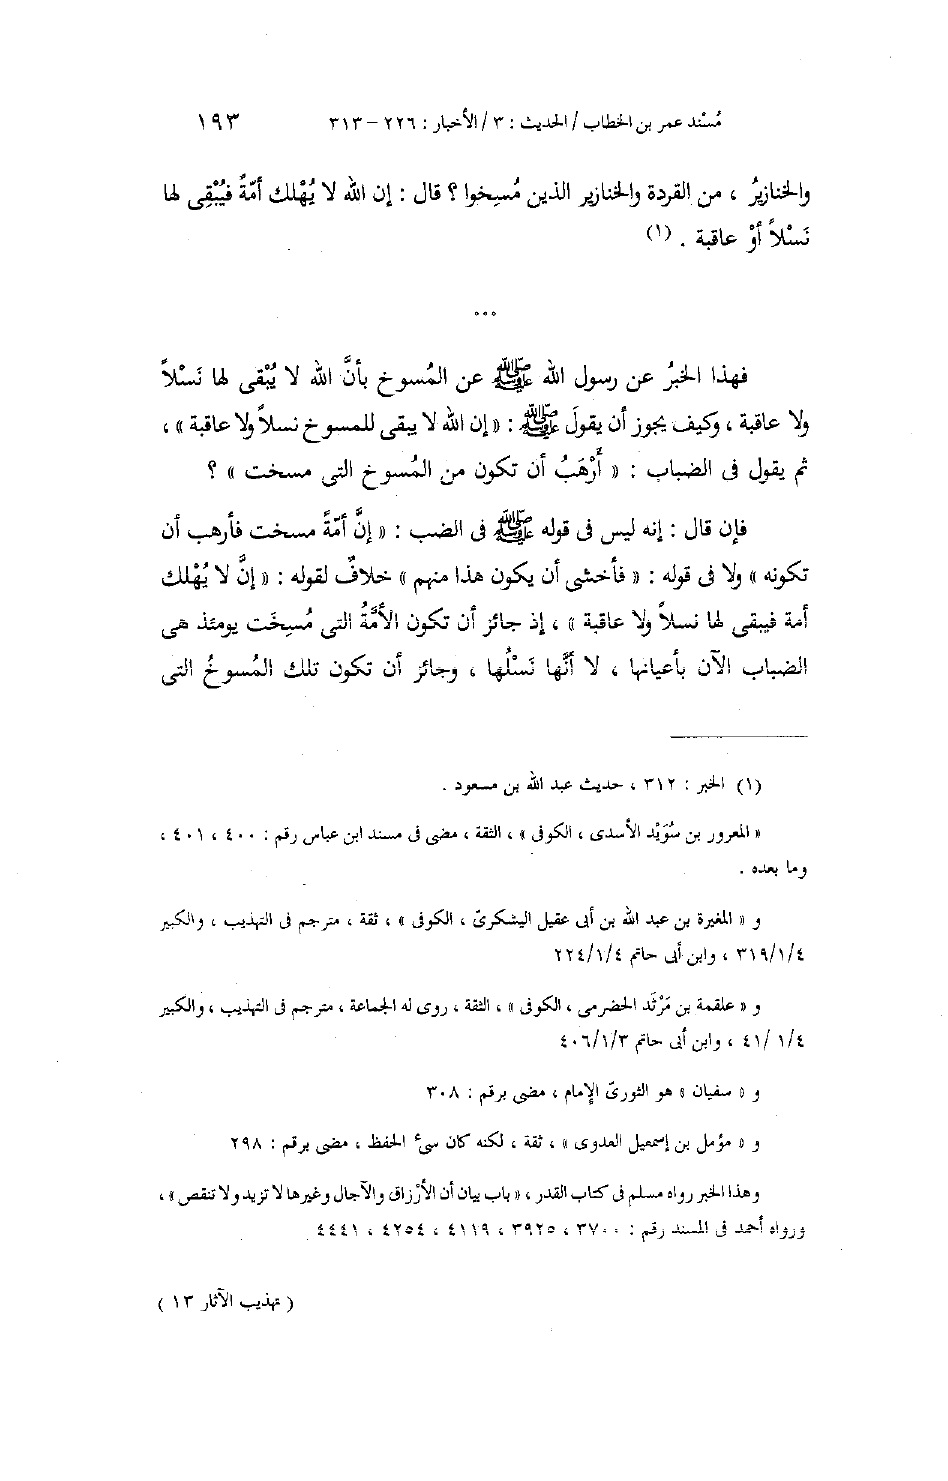 مُسْند عمر بن الخطاب / الحديث : ٣ / الأخبار : ٢٢٦ – ٣١٣ ١٩٣
والخنازيرُ ، من القردة والخنازير الذين مُسِخوا ؟ قال : إن الله لا يُهْلك أمّةً فيُبْقِى لها
نَسْلاً أوْ عاقبة . (١)
...
فهذا الخبرُ عن رسول الله ﷺ عن المُسوخ بأنَّ الله لا يُبْقى لها نَسْلاً
ولا عاقبة ، وكيف يجوز أن يقولَ ﷺ : « إن الله لا يبقى للمسوخ نسلاً ولا عاقبة » ،
ثم يقول فى الضباب : « أَرْهَبُ أن تكون من المُسوخ التى مسخت » ؟
فإن قال : إنه ليس فى قوله ﷺ فى الضب : « إنَّ أمّةً مسخت فأرهب أن
تكونه » ولا فى قوله : « فأخشى أن يكون هذا منهم » خلافٌ لقوله : « إنَّ لا يُهْلك
أمة فيبقى لها نسلاً ولا عاقبة » ، إذ جائز أن تكون الأمَّةُ التى مُسِخَت يومئذ هى
الضباب الآن بأعيانها ، لا أنَّها نَسْلُها ، وجائز أن تكون تلك المُسوخُ التى
(١) الخبر : ٣١٢ ، حديث عبد الله بن مسعود .
« المعرور بن سُوَيْد الأسدى ، الكوفى » ، الثقة ، مضى فى مسند ابن عباس رقم : ٤٠٠ ، ٤٠١ ،
وما بعده .
و « المغيرة بن عبد الله بن أبى عقيل اليشكرىّ ، الكوفى » ، ثقة ، مترجم فى التهذيب ، والكبير
٣١٩/١/٤ ، وابن أبى حاتم ٢٢٤/١/٤
و « علقمة بن مَرْثَد الحضرمى ، الكوفى » ، الثقة ، روى له الجماعة ، مترجم فى التهذيب ، والكبير
٤١/ ١/٤ ، وابن أبى حاتم ٤٠٦/١/٣
و « سفيان » هو الثورىّ الإمام ، مضى برقم : ٣٠٨
و « مؤمل بن إسمعيل العدوى » ، ثقة ، لكنه كان سىء الحفظ ، مضى برقم : ٢٩٨
وهذا الخبر رواه مسلم فى كتاب القدر ، « باب بيان أن الأرْزاق والآجال وغيرها لا تزيد ولا تنقص » ،
ورواه أحمد فى المسند رقم : ٣٧٠٠ ، ٣٩٢٥ ، ٤١١٩ ، ٤٢٥٤ ، ٤٤٤١
( تهذيب الآثار ١٣ )